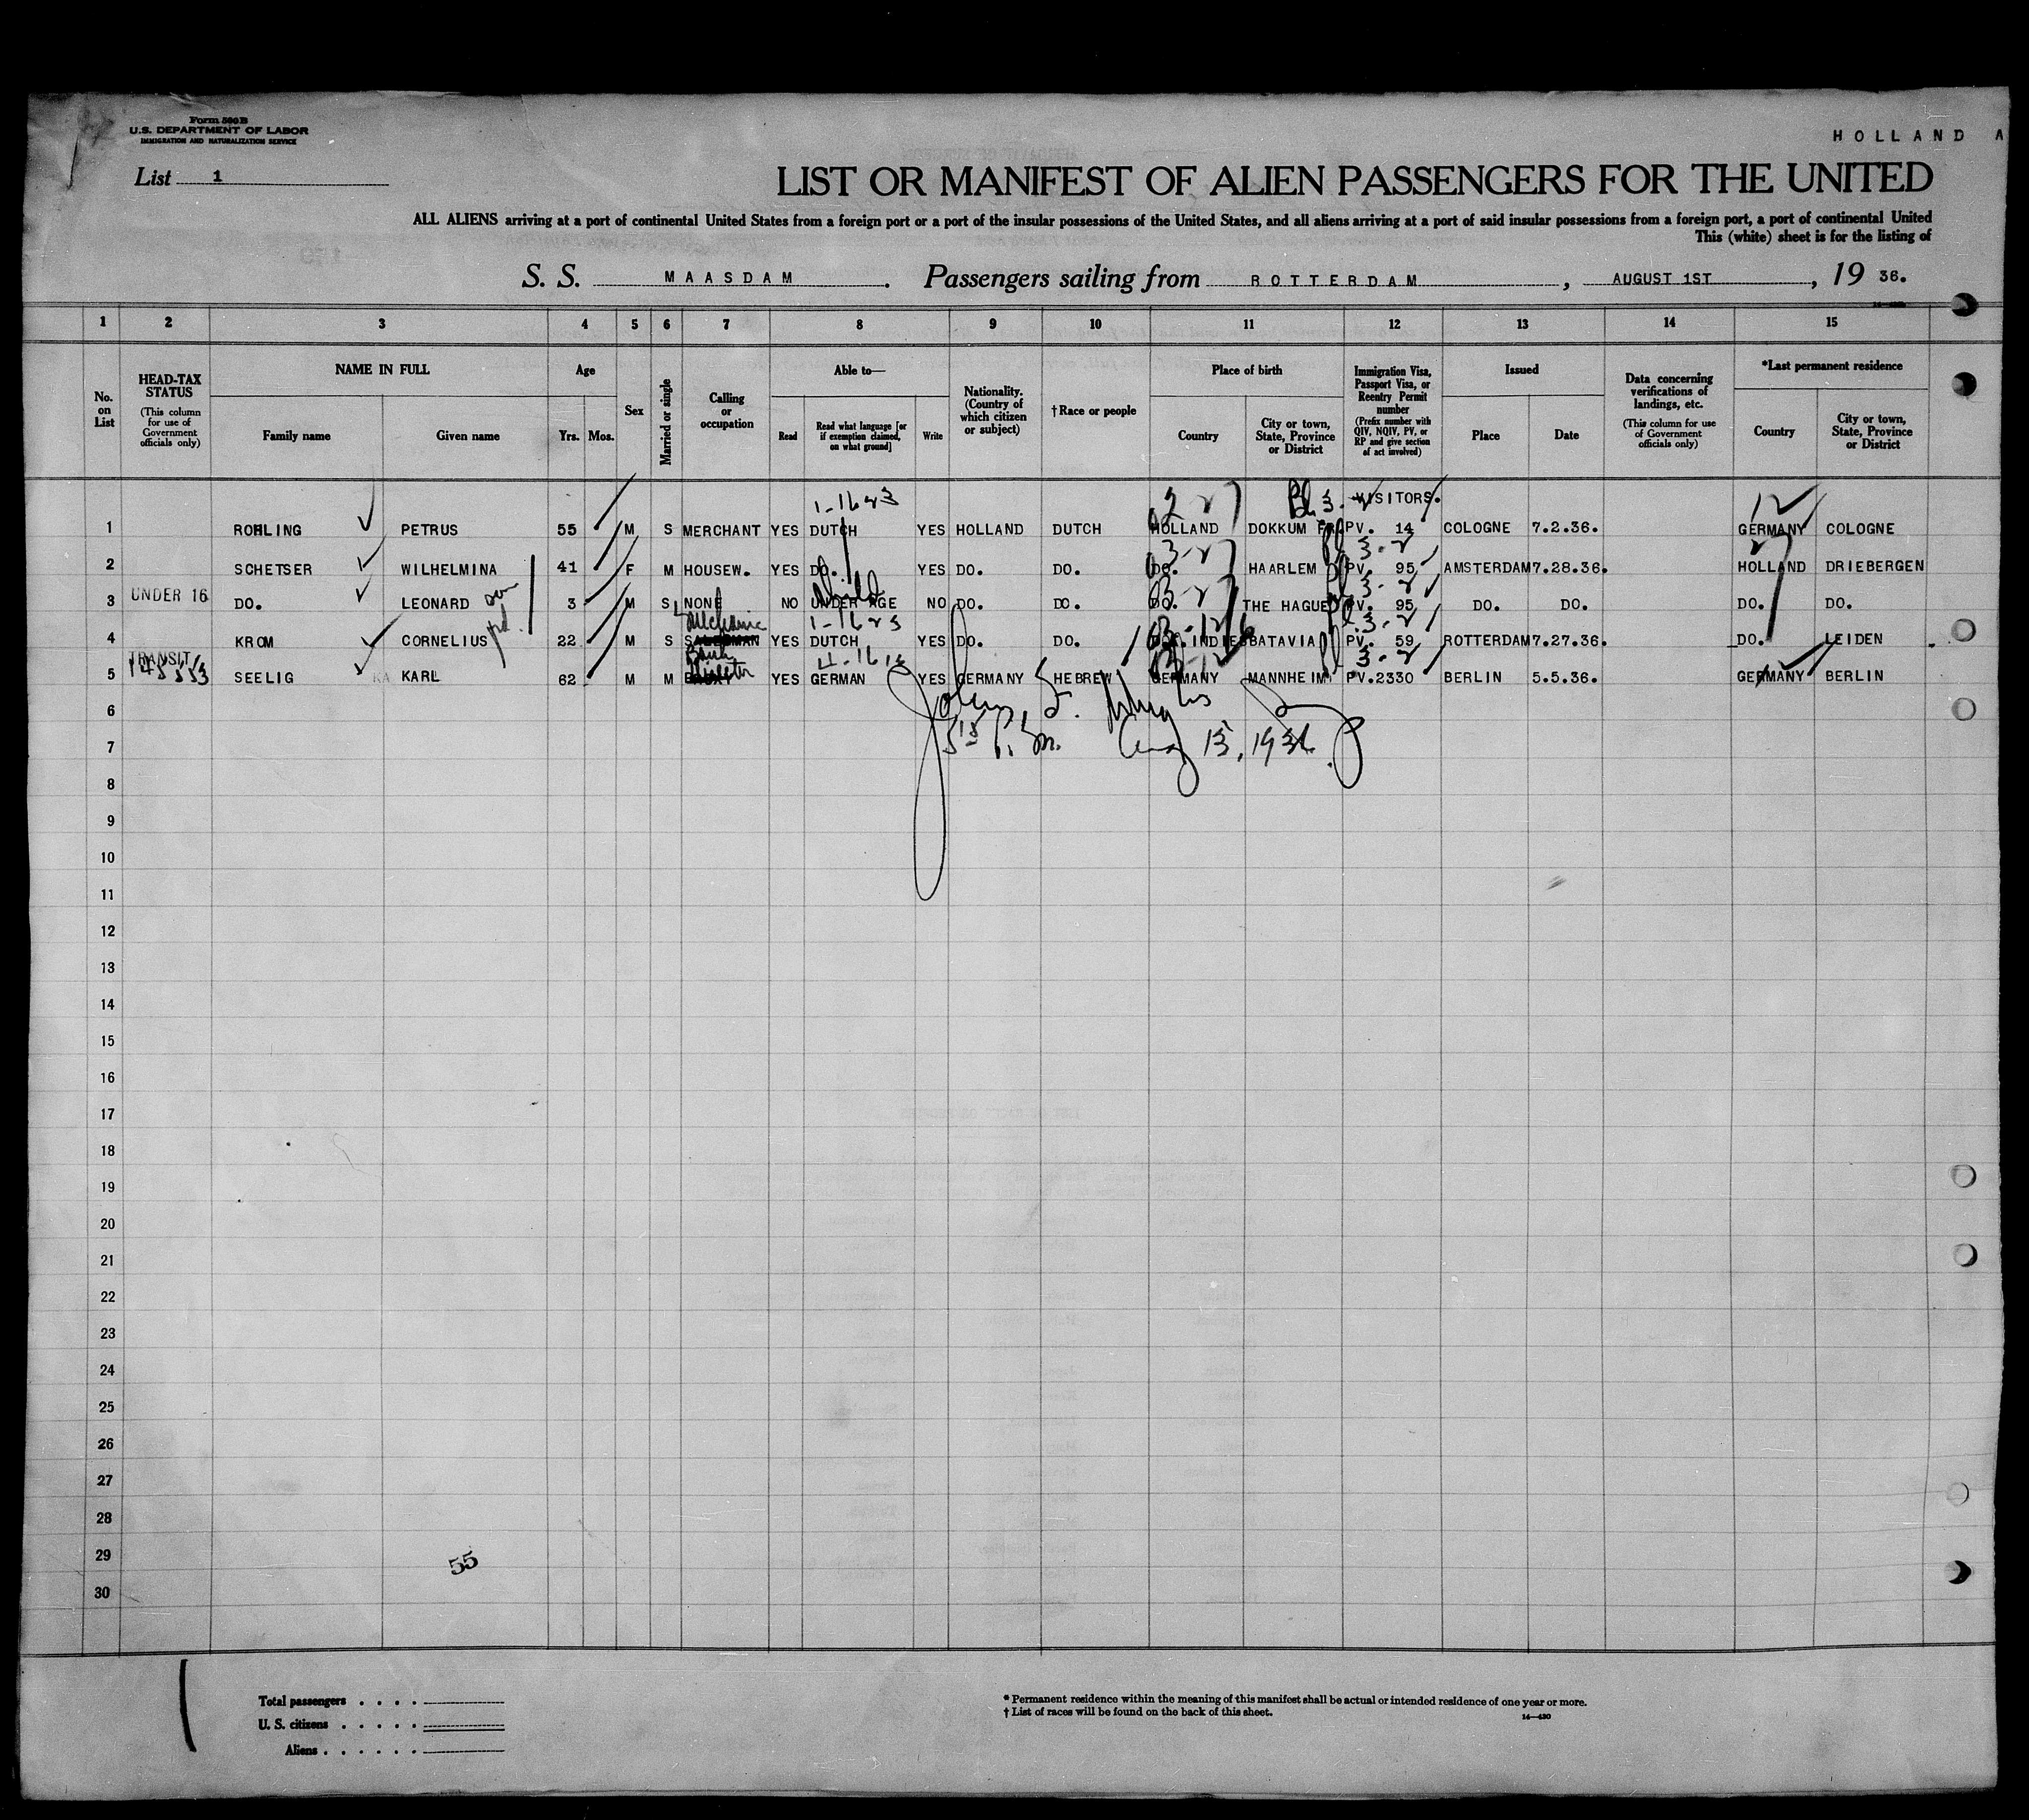 Form 500 B
U.S. DEPARTMENT OF LABOR
IMMIGRATION AND NATURALIZATION SERVICE
HOLLAND A
List 1
LIST OR MANIFEST OF ALIEN PASSENGERS FOR THE UNITED
ALL ALIENS arriving at a port of continental United States from a foreign port or a port of the insular possessions of the United States, and all aliens arriving at a port of said insular possessions from a foreign port, a port of continental United
This (white) sheet is for the listing of
S. S. MAASDAM. Passengers sailing from ROTTERDAM, AUGUST 1ST, 19 36.
1 2 3 4 5 6 7 8 9 10 11 12 13 14 15
No. on List
HEAD-TAX STATUS (This column for use of Government officials only)
NAME IN FULL
Family name Given name
Age
Yrs. Mos.
Sex
Married or single
Calling or occupation
Able to—
Read Read what language [or if exemption claimed, on what ground] Write
Nationality. (Country of which citizen or subject)
†Race or people
Place of birth
Country City or town, State, Province or District
Immigration Visa, Passport Visa, or Reentry Permit number (Prefix number with QIV, NQIV, PV, or RP and give section of act involved)
Issued
Place Date
Data concerning verifications of landings, etc. (This column for use of Government officials only)
*Last permanent residence
Country City or town, State, Province or District
VISITORS.
1 ROHLING PETRUS 55 M S MERCHANT YES DUTCH YES HOLLAND DUTCH HOLLAND DOKKUM FR PV. 14 COLOGNE 7.2.36. GERMANY COLOGNE
2 SCHETSER WILHELMINA 41 F M HOUSEW. YES DO. YES DO. DO. DO. HAARLEM PV. 95 AMSTERDAM 7.28.36. HOLLAND DRIEBERGEN
3 UNDER 16 DO. LEONARD son 3 M S NONE NO UNDER AGE child NO DO. DO. DO. THE HAGUE PV. 95 DO. DO. DO. DO.
Mechanic 1-1623
4 KROM CORNELIUS 22 M S SALESMAN YES DUTCH YES DO. DO. INDIES BATAVIA PV. 59 ROTTERDAM 7.27.36. DO. LEIDEN
TRANSIT
5 SEELIG KARL 62 M M YES GERMAN YES GERMANY HEBREW GERMANY MANNHEIM PV.2330 BERLIN 5.5.36. GERMANY BERLIN
John
P.M. Aug 13, 1936
6
7
8
9
10
11
12
13
14
15
16
17
18
19
20
21
22
23
24
25
26
27
28
29
30
55
Total passengers . . . .
U. S. citizens . . . . .
Aliens . . . . . .
* Permanent residence within the meaning of this manifest shall be actual or intended residence of one year or more.
† List of races will be found on the back of this sheet.
14—430